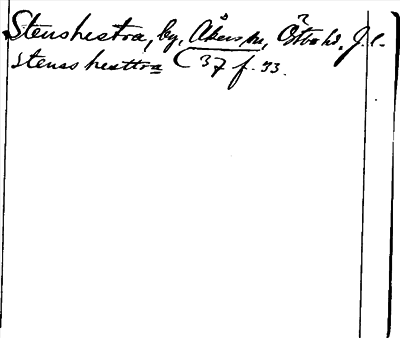 Stenshestra, by, Åkers sn, Östbo hd, J.l.
stenss hesttra (37 f. 33.